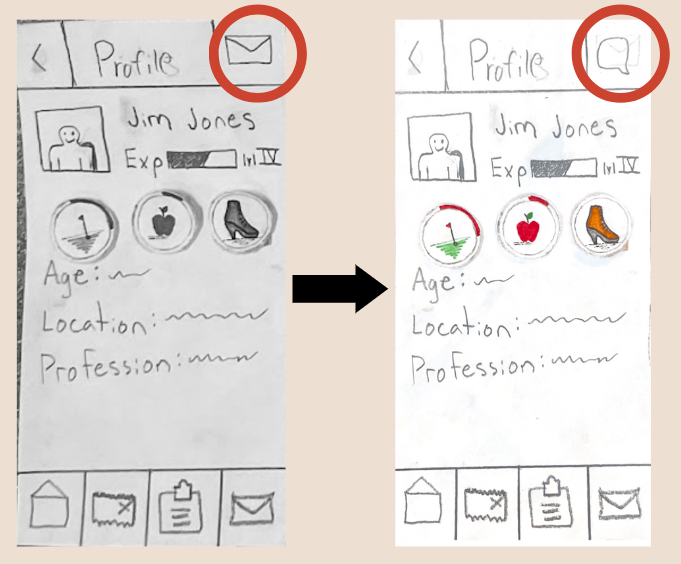 Profile
Jim Jones
Exp lvl IV
Age:
Location:
Profession:
Profile
Jim Jones
Exp lvl IV
Age:
Location:
Profession: